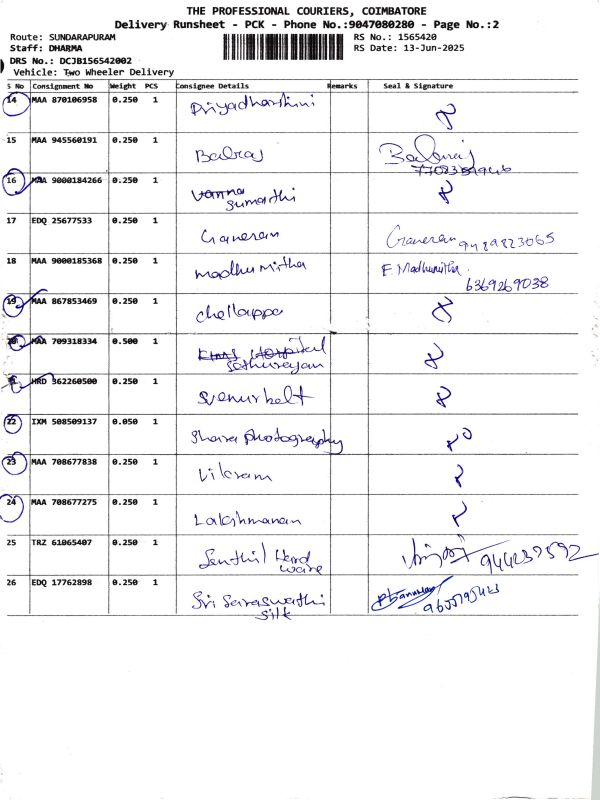 THE PROFESSIONAL COURIERS, COIMBATORE
Delivery Runsheet - PCK - Phone No.:9047080280 - Page No.:2
Route: SUNDARAPURAM RS No.: 1565420
Staff: DHARMA RS Date: 13-Jun-2025
DRS No.: DCJB156542002
Vehicle: Two Wheeler Delivery
S No Consignment No Weight PCS Consignee Details Remarks Seal & Signature
14 MAA 870106958 0.250 1 Priyadharshini
15 MAA 945560191 0.250 1 Balraj Balraj
16 MAA 9000184266 0.250 1 Vanna
Sumathi
17 EDQ 25677533 0.250 1 Ganesan Ganesan 9489823065
18 MAA 9000185368 0.250 1 madhu mitha F. Madhumitha
6369269038
19 MAA 867853469 0.250 1 chellappa
20 MAA 709318334 0.500 1 Hospital
21 HRD 362260500 0.250 1
22 IXM 508509137 0.050 1 Shara photography
23 MAA 708677838 0.250 1 Vikram
24 MAA 708677275 0.250 1 Lakshmanan
25 TRZ 61065407 0.250 1 Senthil Hard
ware
26 EDQ 17762898 0.250 1 Sri Saraswathi
Silk